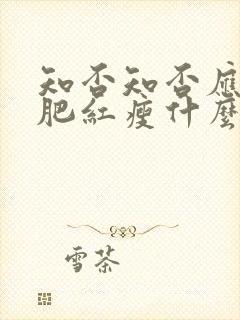 知否知否應
肥紅瘦什麼
雪茶